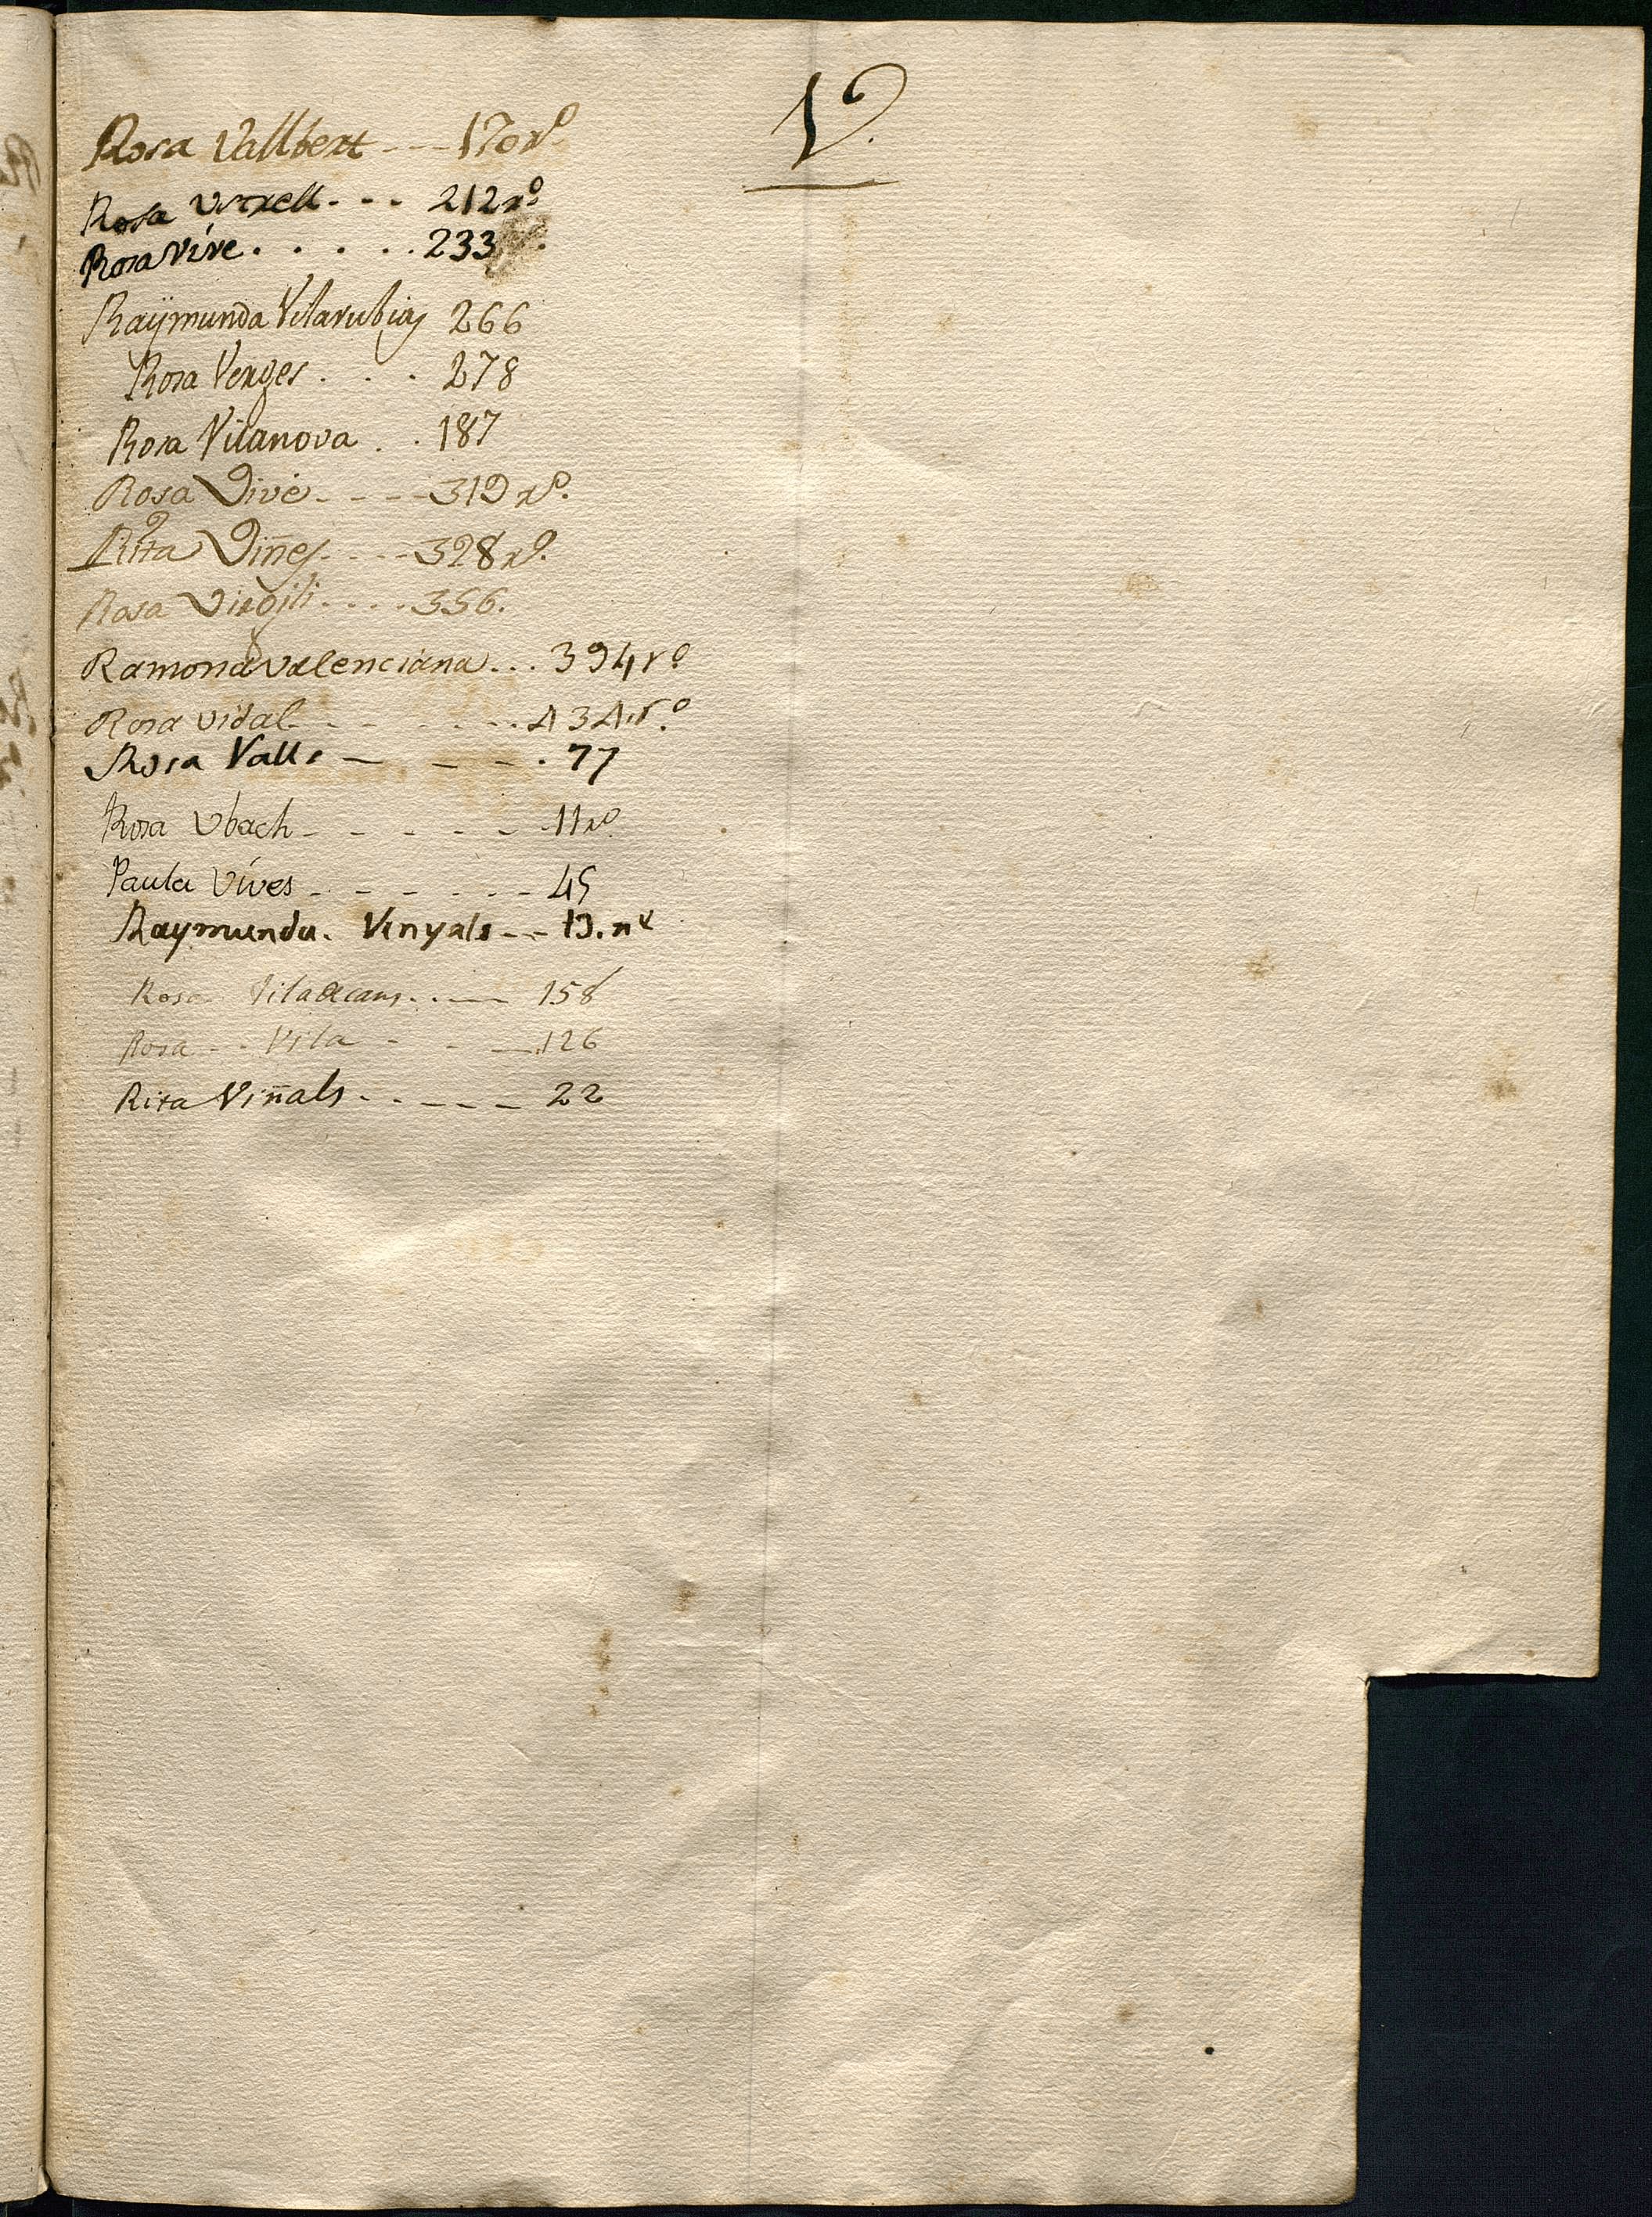 V.
Rosa Vallbert --- 170 rº
Rosa Urxell. - - . 212 rº
Rosa Vive . . . . . . 233
Raÿmunda Vilarubias 266
Rosa Verges . . . 278
Rosa Vilanova . . 187
Rosa Vivé - - - - 319 rº.
Rita Viñes. - - - 328 rº.
Rosa Virgili . . . . 356.
Ramona valenciana . . . 394 rº
Rosa vidal - - - - . . 434 rº
Rosa Valls - - - - . 77
Rosa Vbach - - - - - - 11 rº
Paula Víves - - - - - - 45
Raymunda. Vinyals -- 13.
Rosa Viladecans . . -- 158
Rosa - - Vila - - -- 126
Rita Viñals - . - - - 22